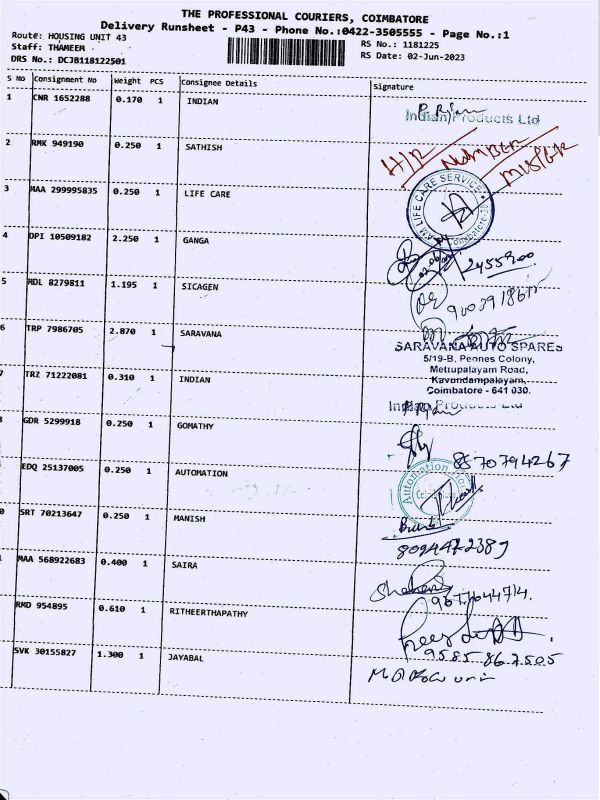 THE PROFESSIONAL COURIERS, COIMBATORE
Delivery Runsheet - P43 - Phone No.:0422-3505555 - Page No.:1
Route: HOUSING UNIT 43
Staff: THAMEEM
DRS No.: DCJB118122501
RS No.: 1181225
RS Date: 02-Jun-2023
S No Consignment No Weight PCS Consignee Details Signature
1 CNR 1652288 0.170 1 INDIAN
Indian Products Ltd
2 RMK 949190 0.250 1 SATHISH
H/R NUMBER
3 MAA 299995835 0.250 1 LIFE CARE
LIFE CARE SERVICE
Coimbatore
4 DPI 10509182 2.250 1 GANGA
2455900
5 MDL 8279811 1.195 1 SICAGEN
6 TRP 7986705 2.870 1 SARAVANA
SARAVANA AUTO SPARES
5/19-B, Peones Colony,
Mettupalayam Road,
Kavundampalayam,
Coimbatore - 641 030.
7 TRZ 71222081 0.310 1 INDIAN
Indian Products Ltd
GDR 5299918 0.250 1 GOMATHY
8570794267
EDQ 25137005 0.250 1 AUTOMATION
Automation
0 SRT 70213647 0.250 1 MANISH
8094472389
MAA 568922683 0.400 1 SAIRA
RMD 954895 0.610 1 RITHEERTHAPATHY
9585867505
SVK 30155827 1.300 1 JAYABAL